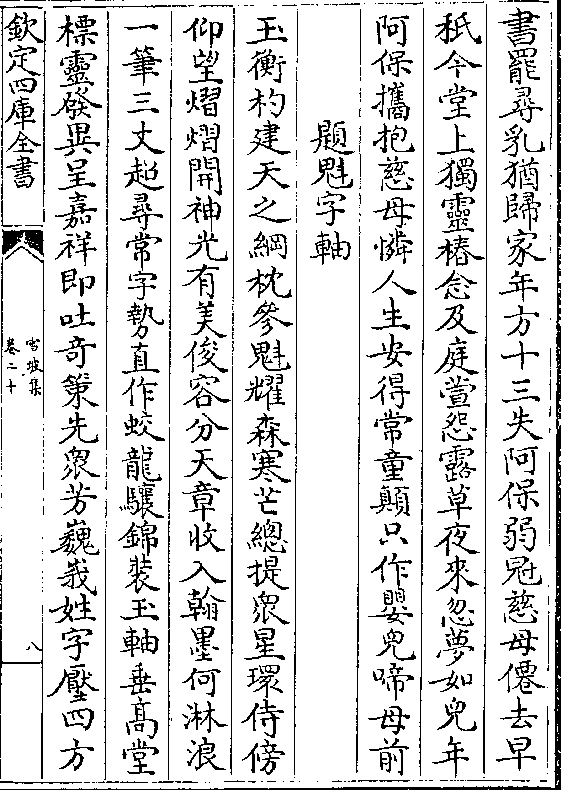 書罷尋乳猶歸家年方十三失阿保弱冠慈母僊去早
秖今堂上獨靈椿念及庭萱怨露草夜來忽夢如兒年
阿保攜抱慈母憐人生安得常童顛只作嬰兒啼母前
題魁字軸
玉衡杓建天之綱枕參魁耀森寒芒總提衆星環侍傍
仰望熠熠開神光有美俊容分天章收入翰墨何淋浪
一筆三丈超尋常字勢直作蛟龍驤錦裝玉軸垂髙堂
標靈發異呈嘉祥即吐奇策先衆芳巍峩姓字壓四方
欽定四庫全書
雪坡集
卷二十
八